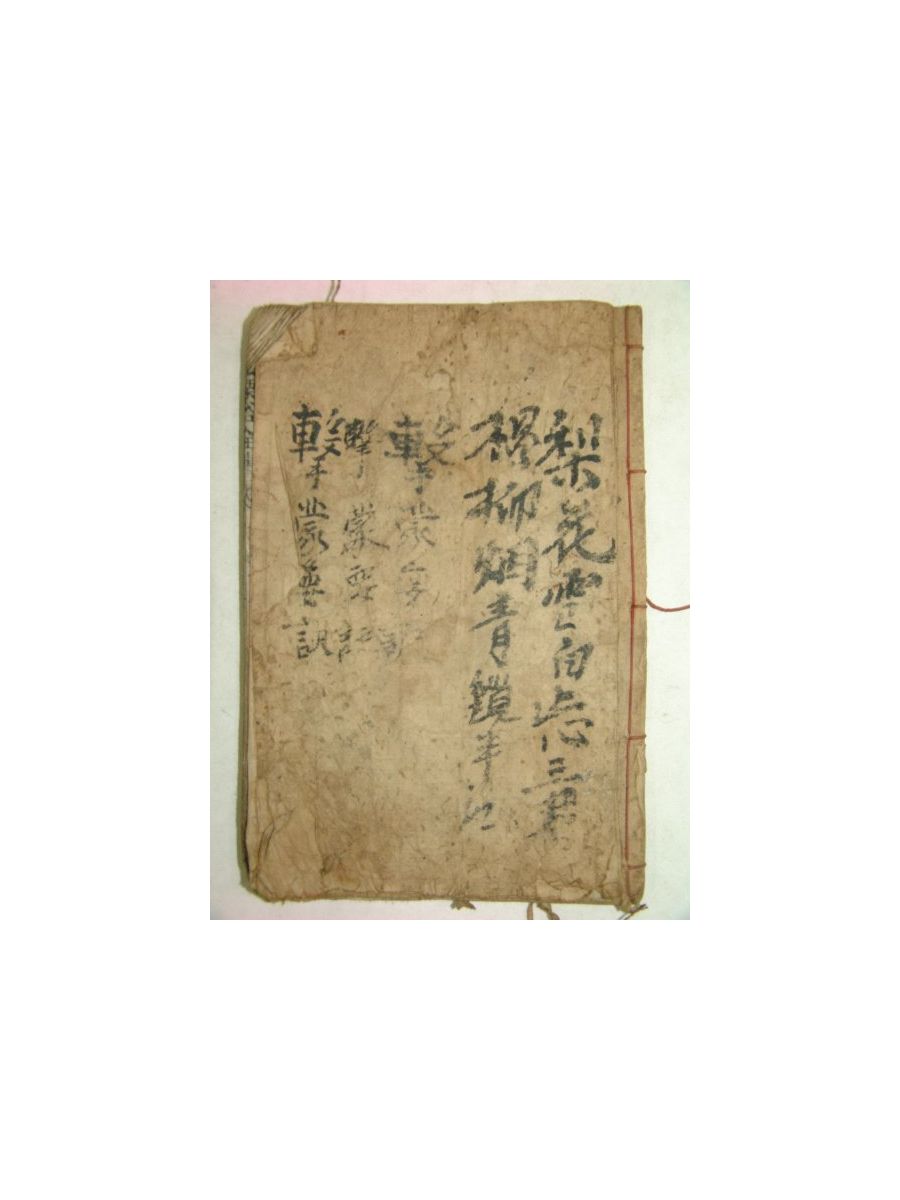 梨花雪白恋三春
楊柳烟青鎖半江
擊蒙
擊蒙要訣
擊蒙要訣